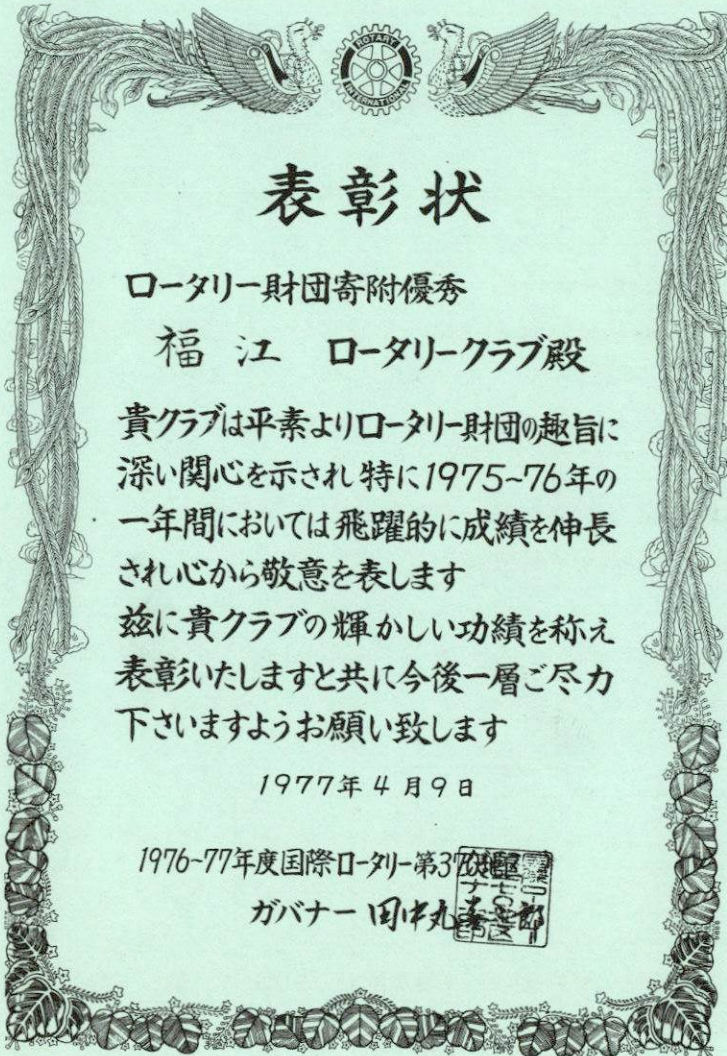 ROTARY
INTERNATIONAL
表彰状
ロータリー財団寄附優秀
福江 ロータリークラブ殿
貴クラブは平素よりロータリー財団の趣旨に
深い関心を示され特に1975~76年の
一年間においては飛躍的に成績を伸長
され心から敬意を表します
玆に貴クラブの輝かしい功績を称え
表彰いたしますと共に今後一層ご尽力
下さいますようお願い致します
1977年4月9日
1976~77年度国際ロータリー第370地区
ガバナー 田中丸 郎